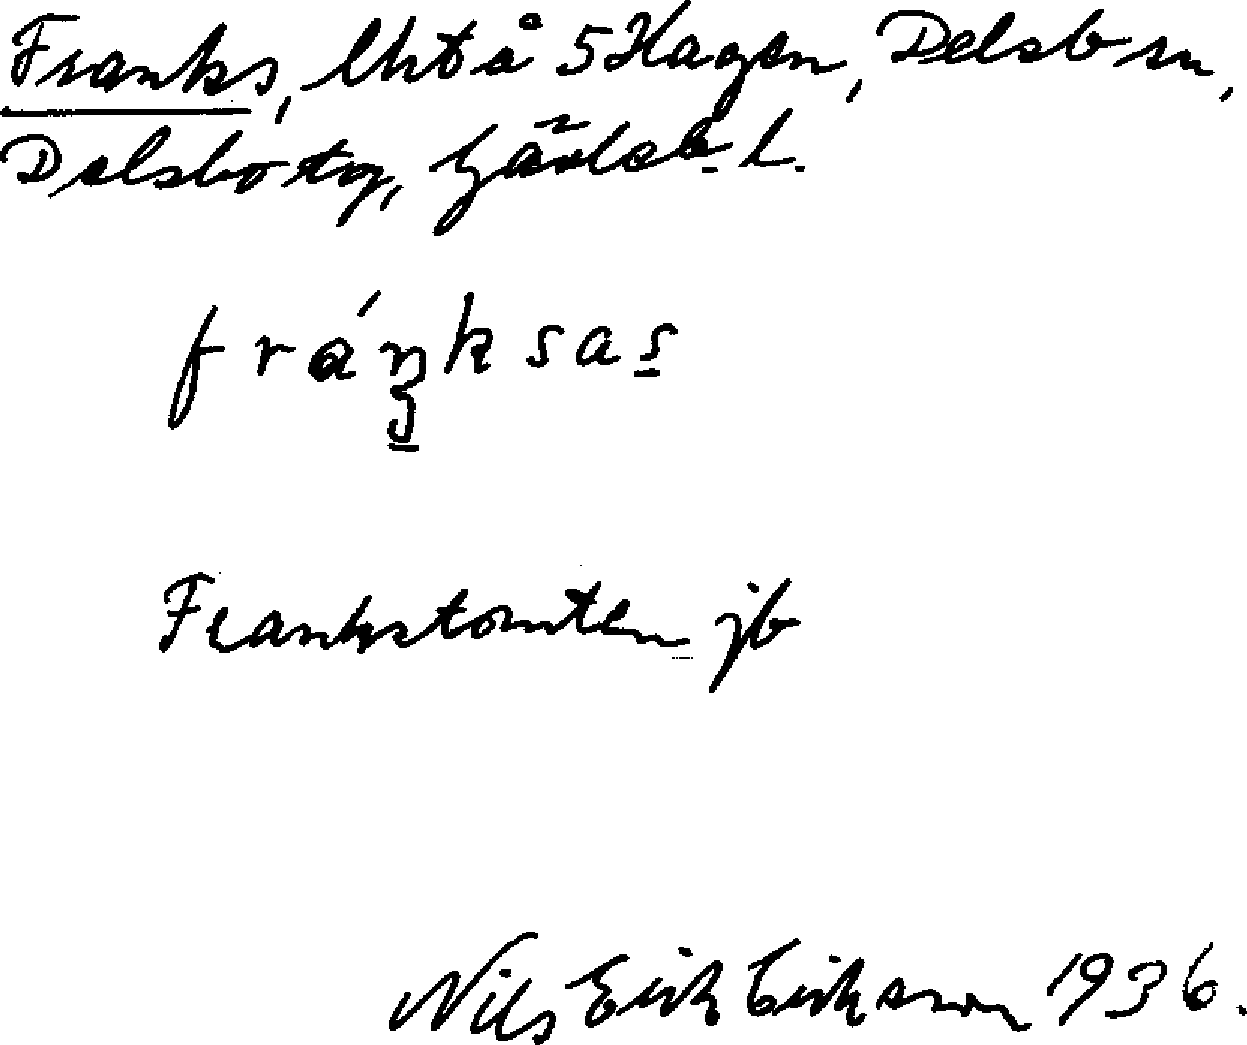 Franks, lht å 5 Hagen, Delsbo sn,
Delsbo tg, Gävleb. l.
fráŋksas
Frankstomten jb
Nils Erik Eriksson 1936.